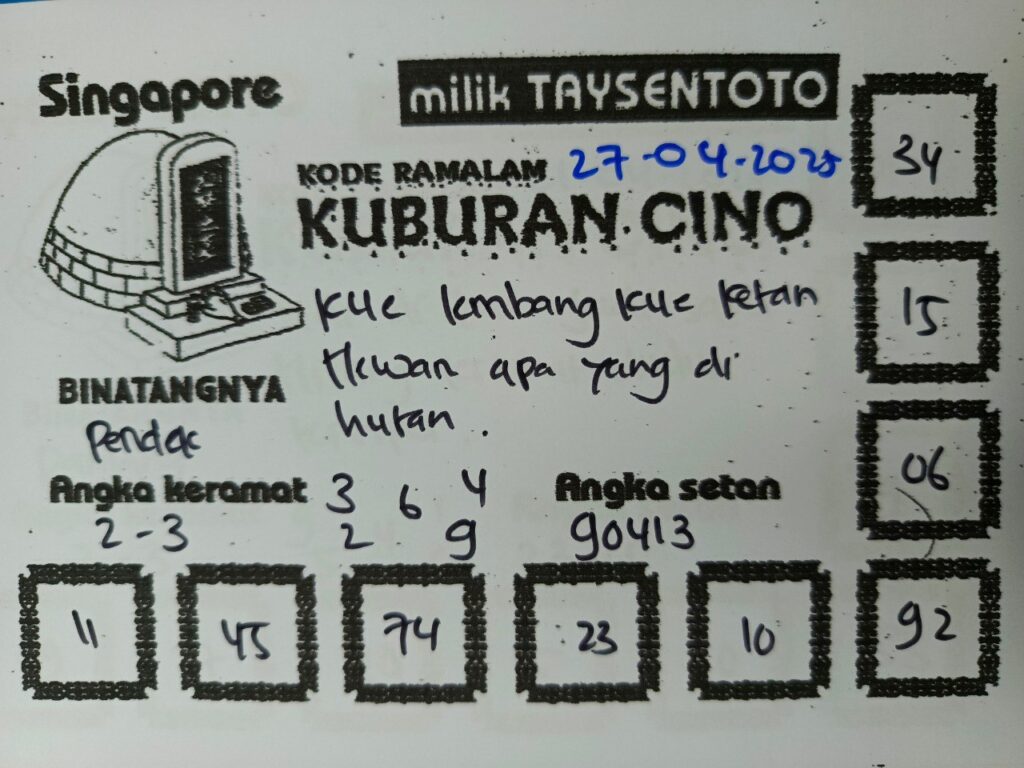 Singapore
milik TAYSENTOTO
KODE RAMALAM 27-04-2025
KUBURAN CINO
kue lembang kue ketan
Hewan apa yang di
hutan.
BINATANGNYA
Pendek
Angka keramat
2-3
3 6 4
2 9
Angka setan
90413
34
15
06
11 45 74 23 10 92